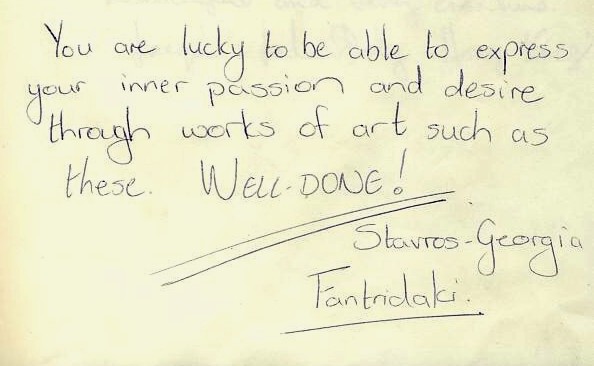 You are lucky to be able to express
your inner passion and desire
through works of art such as
these. WELL-DONE!
Stavros-Georgia
Fantridaki.